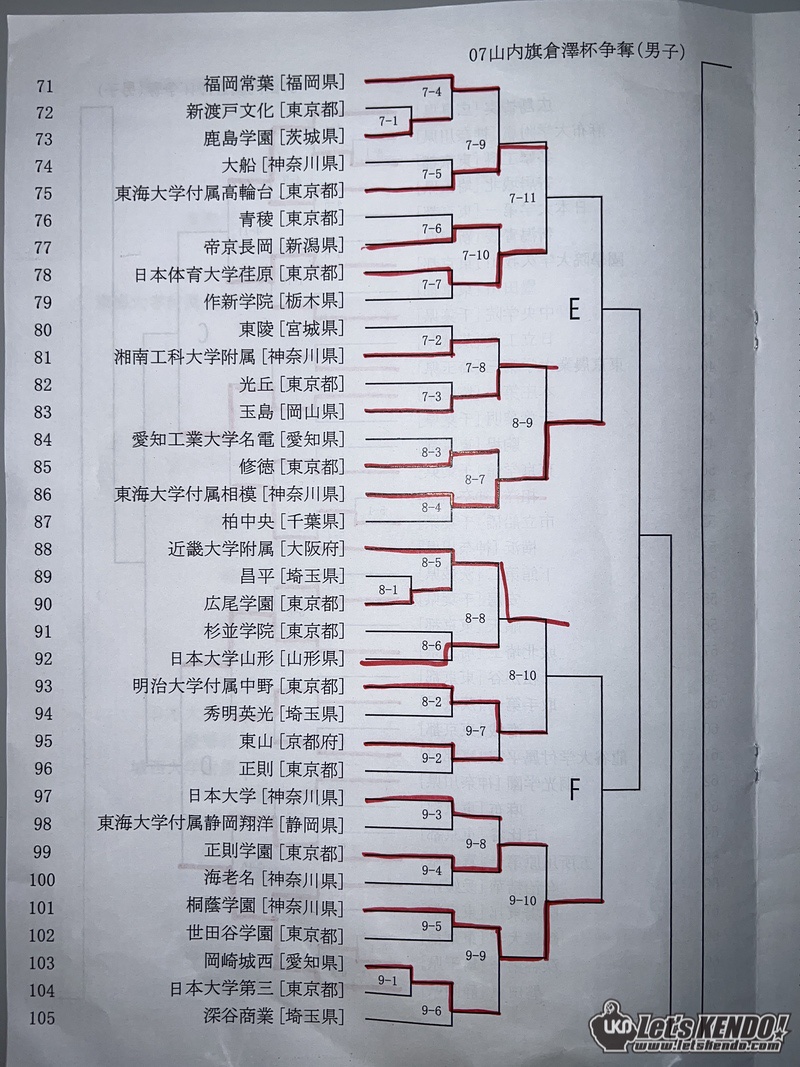 07山内旗倉澤杯争奪(男子)
71 福岡常葉[福岡県]
72 新渡戸文化[東京都]
73 鹿島学園[茨城県]
74 大船[神奈川県]
75 東海大学付属高輪台[東京都]
76 青稜[東京都]
77 帝京長岡[新潟県]
78 日本体育大学荏原[東京都]
79 作新学院[栃木県]
80 東陵[宮城県]
81 湘南工科大学附属[神奈川県]
82 光丘[東京都]
83 玉島[岡山県]
84 愛知工業大学名電[愛知県]
85 修徳[東京都]
86 東海大学付属相模[神奈川県]
87 柏中央[千葉県]
88 近畿大学附属[大阪府]
89 昌平[埼玉県]
90 広尾学園[東京都]
91 杉並学院[東京都]
92 日本大学山形[山形県]
93 明治大学付属中野[東京都]
94 秀明英光[埼玉県]
95 東山[京都府]
96 正則[東京都]
97 日本大学[神奈川県]
98 東海大学付属静岡翔洋[静岡県]
99 正則学園[東京都]
100 海老名[神奈川県]
101 桐蔭学園[神奈川県]
102 世田谷学園[東京都]
103 岡崎城西[愛知県]
104 日本大学第三[東京都]
105 深谷商業[埼玉県]
7-1
7-4
7-5
7-6
7-7
7-2
7-3
8-3
8-4
8-1
8-5
8-6
8-2
9-2
9-3
9-4
9-5
9-1
9-6
7-9
7-10
7-8
8-7
8-8
9-7
9-8
9-9
7-11
8-9
8-10
9-10
E
F
UKD Let's KENDO!
www.letskendo.com